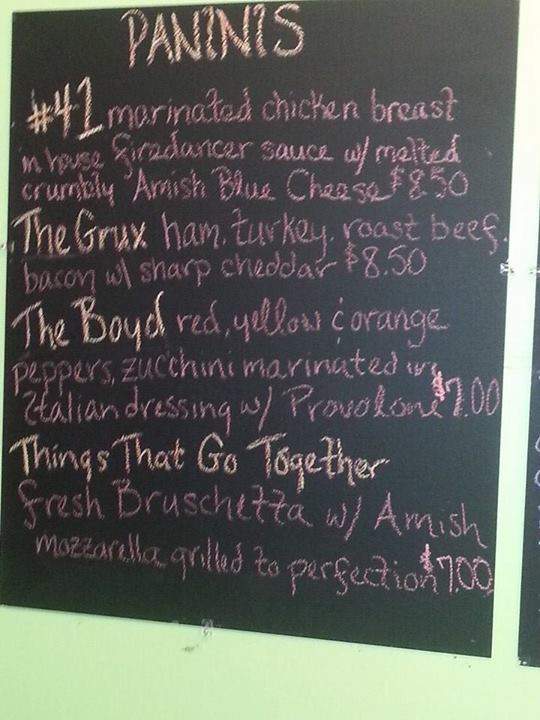 PANINIS
#41 marinated chicken breast
in house firedancer sauce w/ melted
crumbly Amish Blue Cheese $8.50
The Grux ham, turkey, roast beef,
bacon w/ sharp cheddar $8.50
The Boyd red, yellow & orange
peppers, zucchini marinated in
Italian dressing w/ Provolone $7.00
Things That Go Together
fresh Bruschetta w/ Amish
mozzarella grilled to perfection $7.00